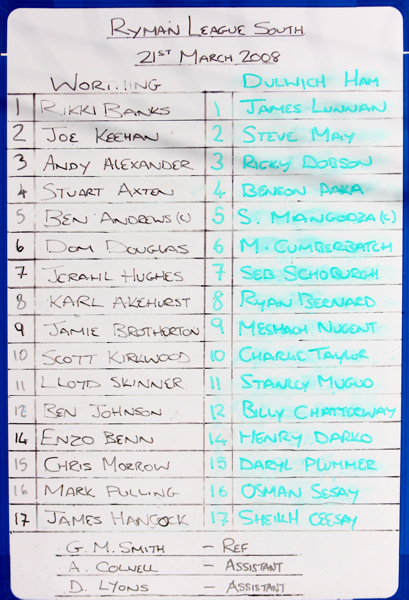 RYMAN LEAGUE SOUTH
21ST MARCH 2008
WORTHING DULWICH HAM
1 RIKKI BANKS 1 JAMES LUNNAN
2 JOE KEEHAN 2 STEVE MAY
3 ANDY ALEXANDER 3 RICKY DOBSON
4 STUART AXTEN 4 BENSON PAKA
5 BEN ANDREWS (C) 5 S. MANGODZA (C)
6 DOM DOUGLAS 6 M. CUMBERBATCH
7 JERAHL HUGHES 7 SEB SCHOBURGH
8 KARL AKEHURST 8 RYAN BERNARD
9 JAMIE BROTHERTON 9 MESHACH NUGENT
10 SCOTT KIRKWOOD 10 CHARLIE TAYLOR
11 LLOYD SKINNER 11 STANLEY MUGUO
12 BEN JOHNSON 12 BILLY CHATTERWAY
14 ENZO BENN 14 HENRY DARKO
15 CHRIS MORROW 15 DARYL PLUMMER
16 MARK PULLING 16 OSMAN SESAY
17 JAMES HANCOCK 17 SHEIKH CEESAY
G. M. SMITH - REF
A. COLWELL - ASSISTANT
D. LYONS - ASSISTANT